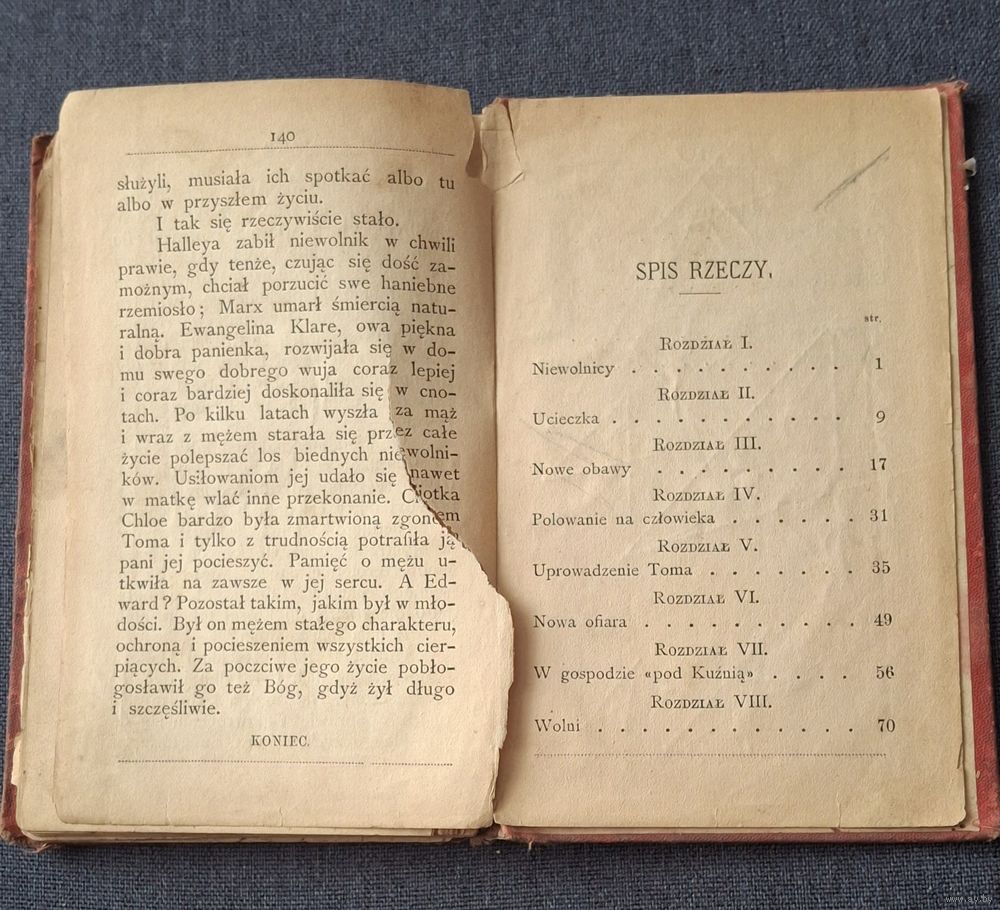 140
służyli, musiała ich spotkać albo tu
albo w przyszłem życiu.
I tak się rzeczywiście stało.
Halleya zabił niewolnik w chwili
prawie, gdy tenże, czując się dość za-
możnym, chciał porzucić swe haniebne
rzemiosło; Marx umarł śmiercią natu-
ralną. Ewangelina Klare, owa piękna
i dobra panienka, rozwijała się w do-
mu swego dobrego wuja coraz lepiej
i coraz bardziej doskonaliła się w cno-
tach. Po kilku latach wyszła za mąż
i wraz z mężem starała się przez całe
życie polepszać los biednych niewolni-
ków. Usiłowaniom jej udało się nawet
w matkę wlać inne przekonanie. Ciotka
Chloe bardzo była zmartwioną zgonem
Toma i tylko z trudnością potrafiła ją
pani jej pocieszyć. Pamięć o mężu u-
tkwiła na zawsze w jej sercu. A Ed-
ward? Pozostał takim, jakim był w mło-
dości. Był on mężem stałego charakteru,
ochroną i pocieszeniem wszystkich cier-
piących. Za poczciwe jego życie pobło-
gosławił go też Bóg, gdyż żył długo
i szczęśliwie.
KONIEC.
SPIS RZECZY.
str.
ROZDŹIAŁ I.
Niewolnicy . . . . . . . . . . 1
ROZDZIAŁ II.
Ucieczka . . . . . . . . . . . 9
ROZDZIAŁ III.
Nowe obawy . . . . . . . . . 17
ROZDZIAŁ IV.
Polowanie na człowieka . . . . . . 31
ROZDZIAŁ V.
Uprowadzenie Toma . . . . . . . 35
ROZDZIAŁ VI.
Nowa ofiara . . . . . . . . . . 49
ROZDZIAŁ VII.
W gospodzie «pod Kuźnią» . . . . 56
ROZDZIAŁ VIII.
Wolni . . . . . . . . . . . . 70
www.ay.by